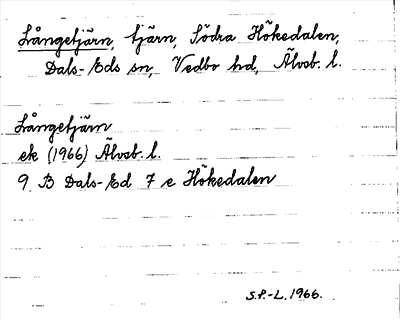 Långetjärn, tjärn, Södra Hökedalen,
Dals-Eds sn, Vedbo hd, Älvsb. l.
Långetjärn
ek (1966) Älvsb. l.
9 B Dals-Ed 7 e Hökedalen
S.F.-L. 1966.